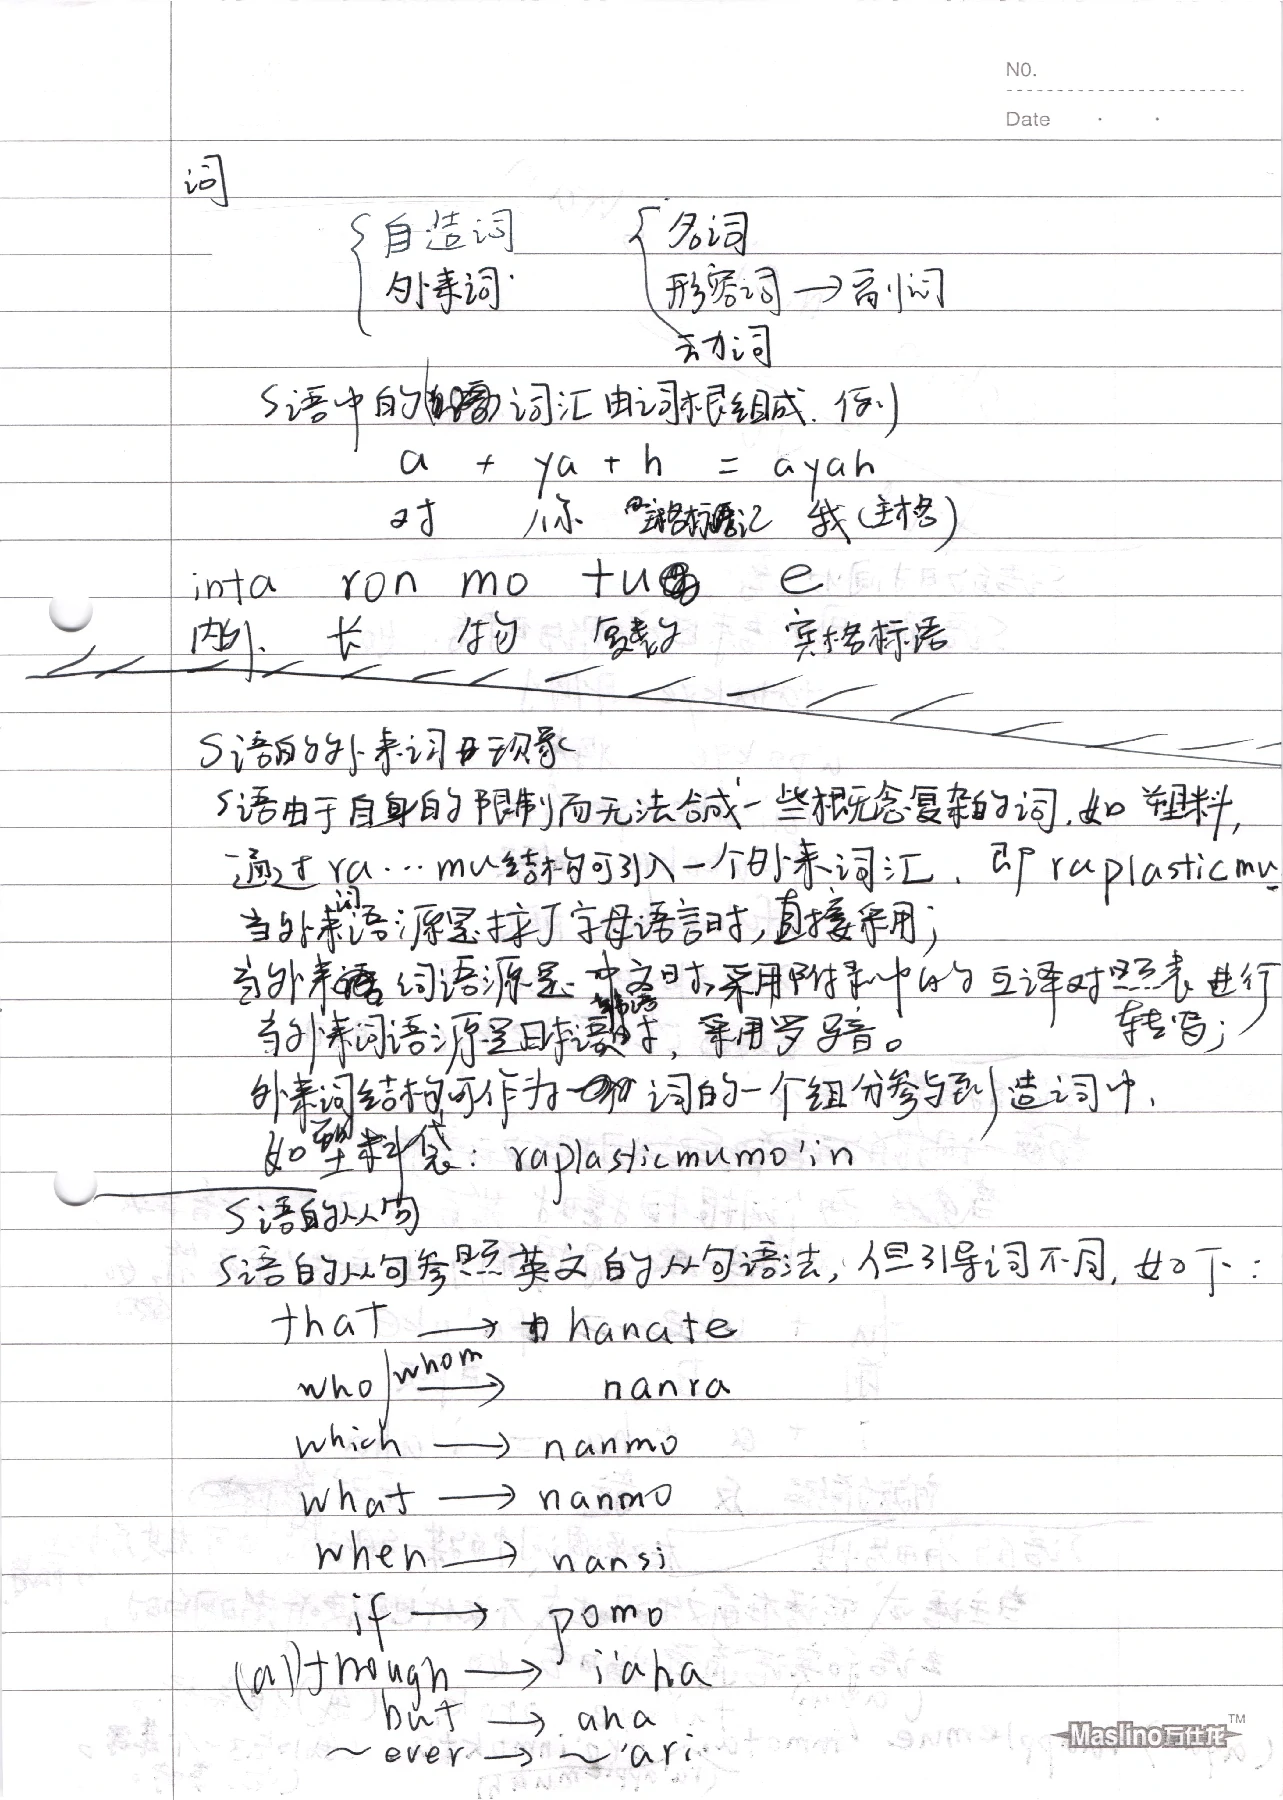 NO.
Date
词
自造词 名词
外来词 形容词 → 副词
动词
S语中的 词汇由词根组成. 例
a + ya + h = ayah
对 你 主格标记 我(主格)
inta ron mo tu e
内外 长 物 复数 宾格标语
S语的外来词 现象
S语由于自身的限制而无法合成一些概念复杂的词.如 塑料,
通过 ra...mu结构可引入一个外来词汇. 即 raplasticmu
当外来词语源是拉丁字母语言时,直接采用;
当外来词语源是 中文时,采用附录中的互译对照表进行
转写;
当外来词语源是日本语 韩语时, 采用罗马音。
外来词结构可作为 词的一个组分参与到造词中.
如塑料袋: raplasticmumo'in
S语的从句
S语的从句参照英文的从句语法,但引导词不同. 如下:
that → hanate
who/whom → nanra
which → nanmo
what → nanmo
when → nansi
if → pomo
(al)though → i'aha
but → aha
~ever → ~'ari
Maslino万仕龙™